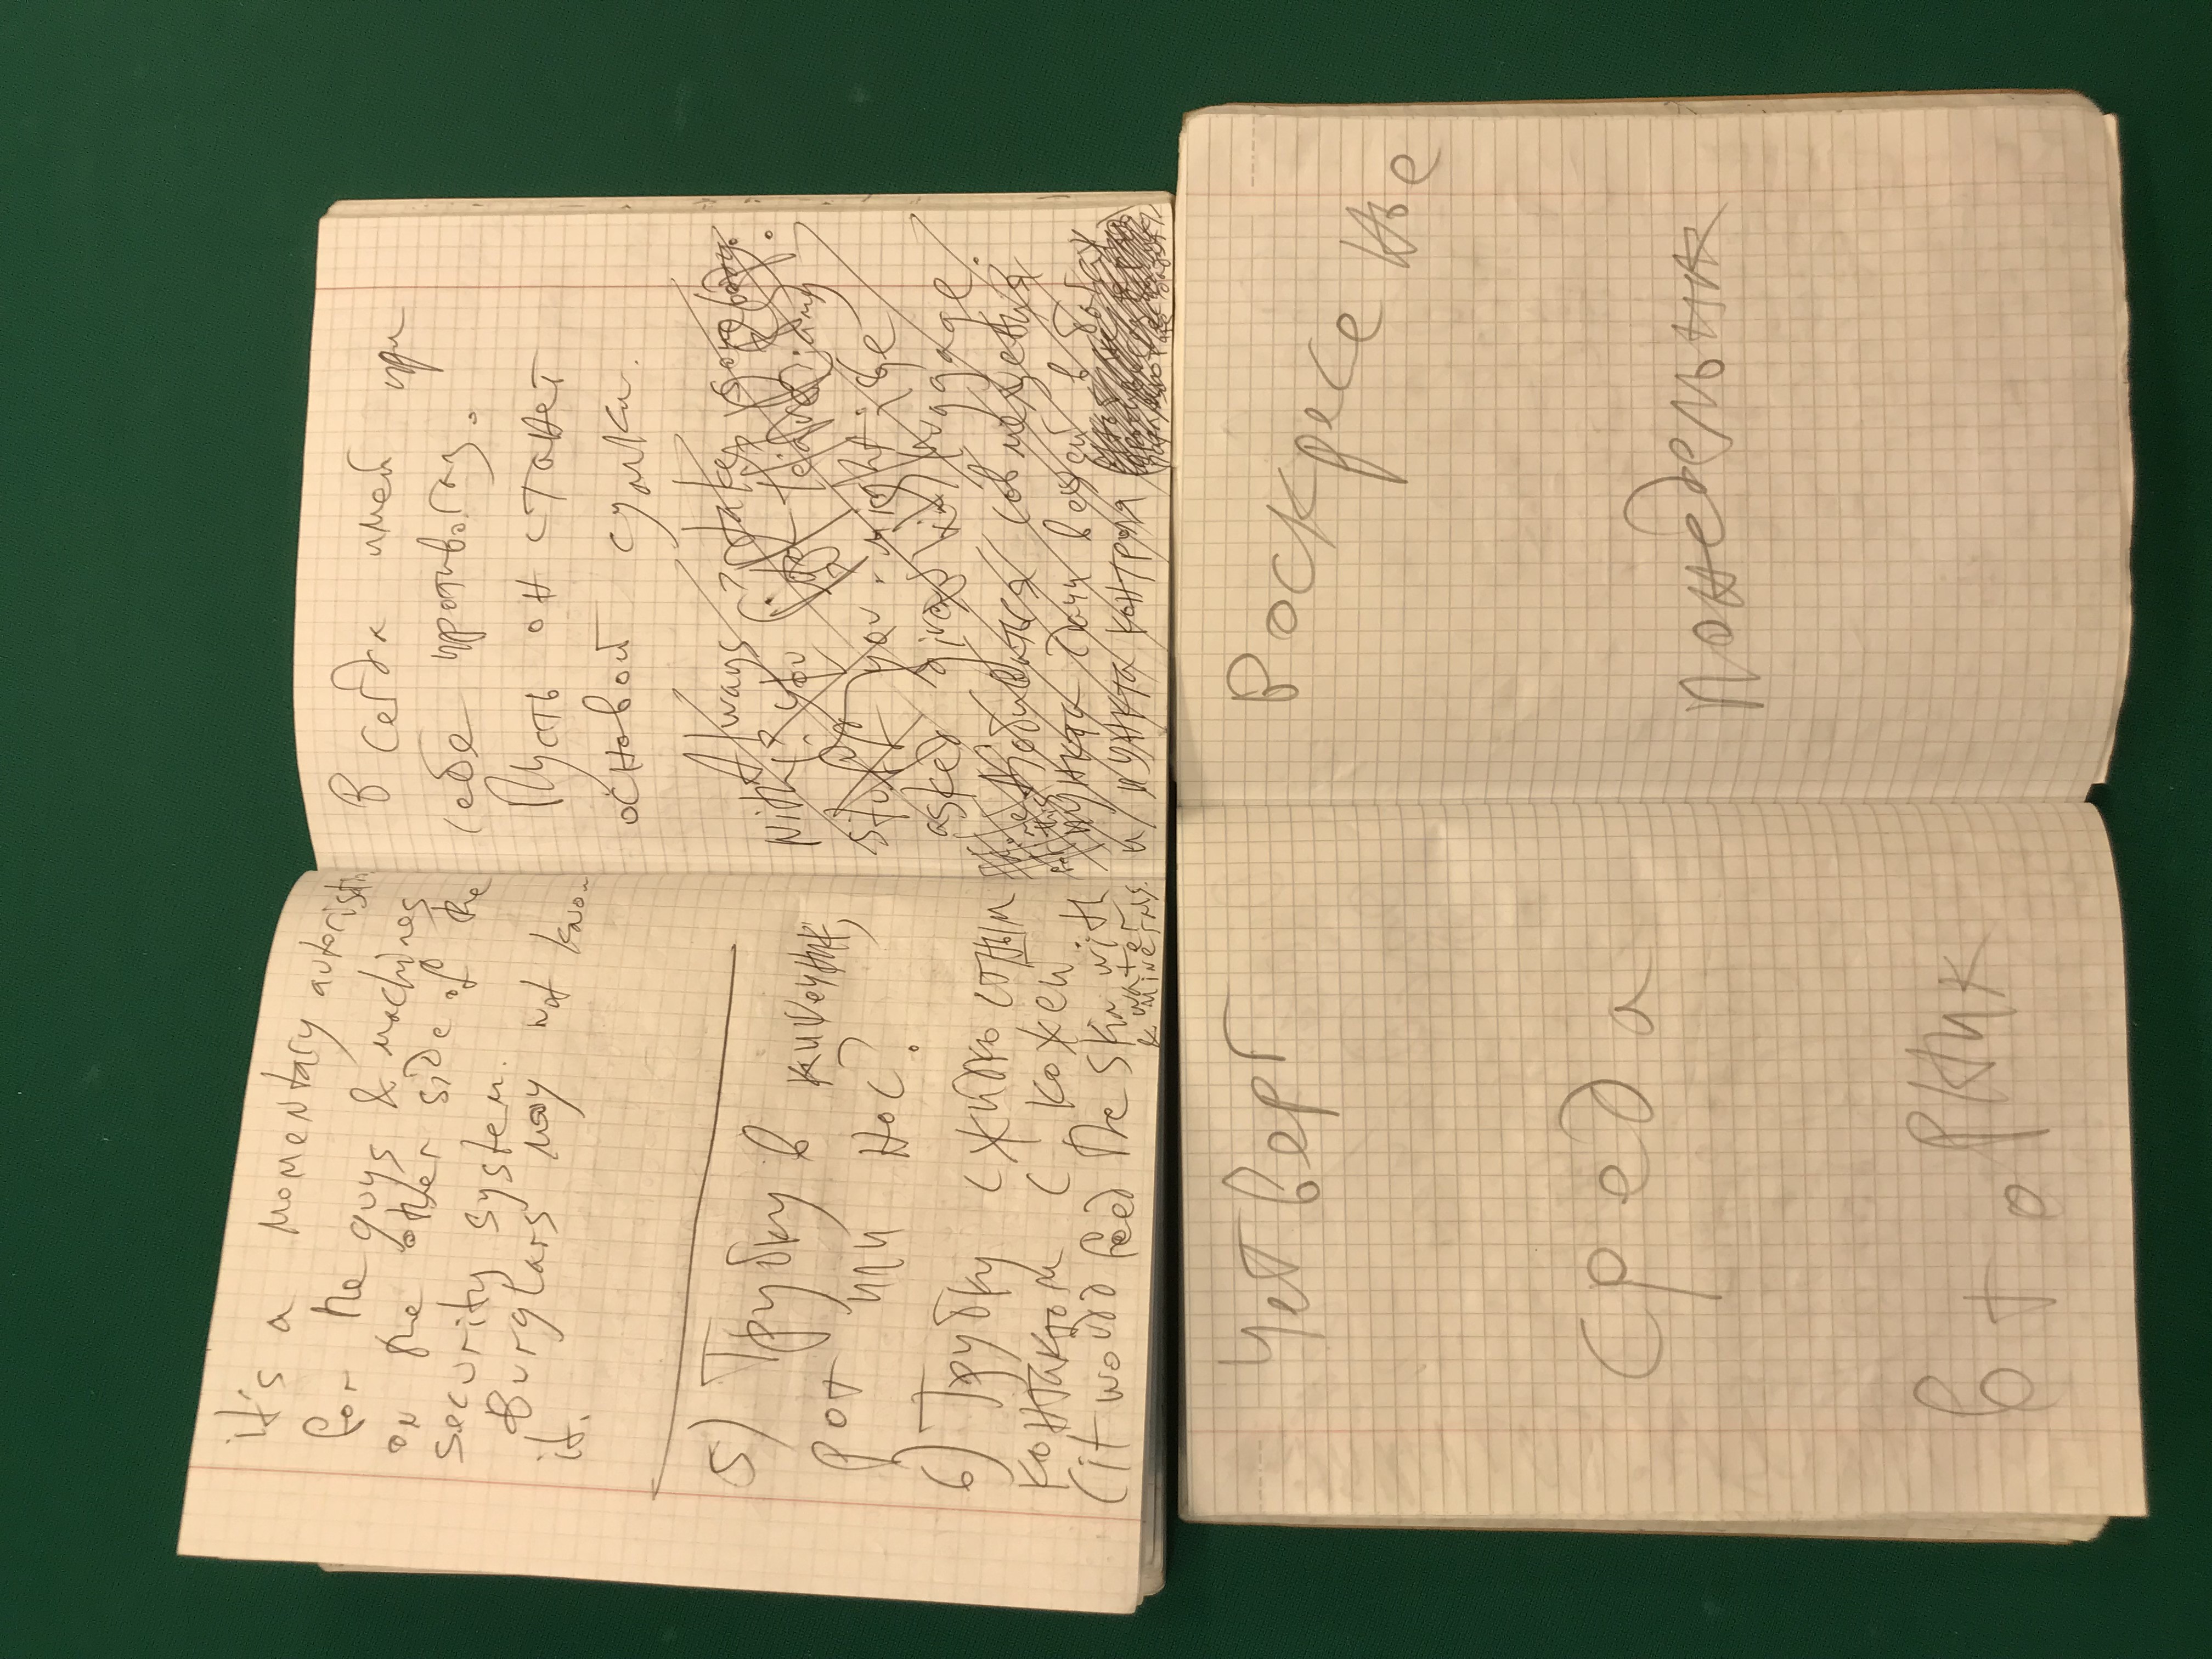 it's a momentary
for the guys & machines
on the other side of the
security system.
Burglars may not know
it.
5) Трубку в кишечник,
рот или нос?
6) Трубку с жидкостным
контактом с кожей
(it would feed the skin with
& water
& minerals.
Всегда имей при
себе противогаз.
Пусть он станет
основой сумки.
Always take somebody
with you
stuff you might be
asked given in luggage.
Добиваться совмещения
пункта сдачи вещей в багаж
и пункта контроля
Четверг
среда
вторник
Воскресенье
понедельник